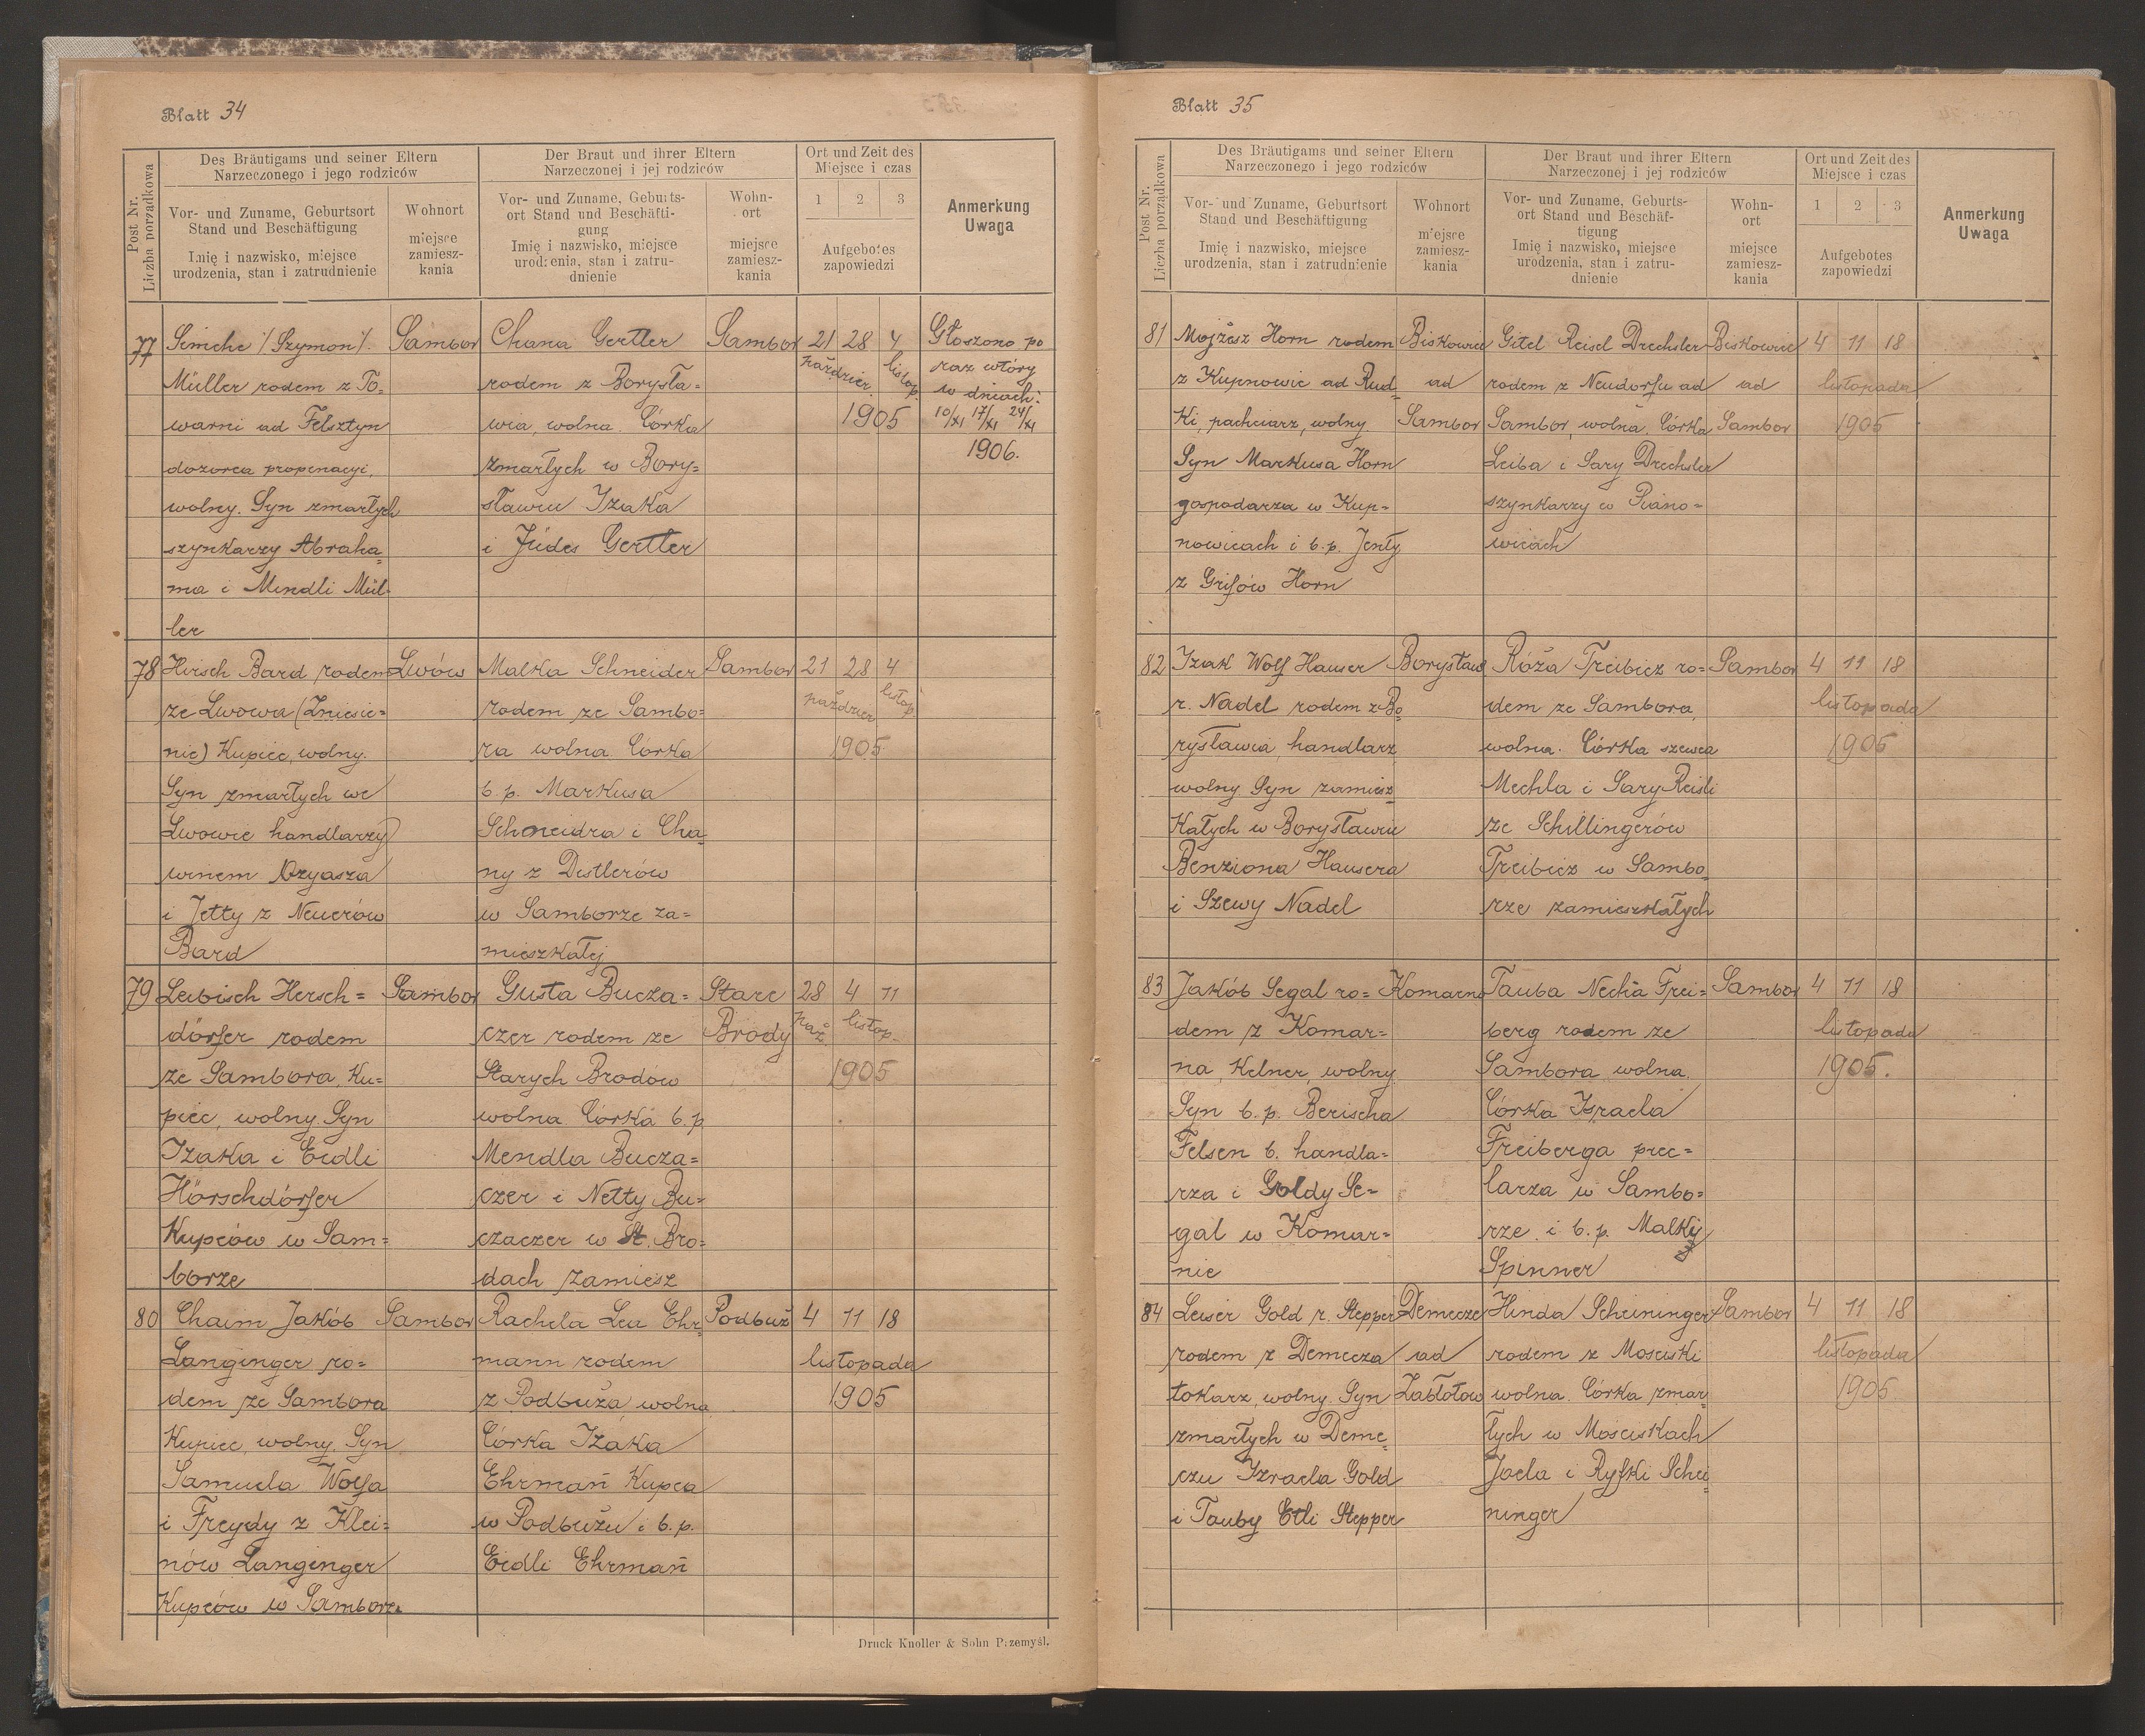 Blatt 34
Post Nr.
Liczba porządkowa
Des Bräutigams und seiner Eltern
Narzeczonego i jego rodziców
Der Braut und ihrer Eltern
Narzeczonej i jej rodziców
Ort und Zeit des
Miejsce i czas
Anmerkung
Uwaga
Vor- und Zuname, Geburtsort
Stand und Beschäftigung
Imię i nazwisko, miejsce
urodzenia, stan i zatrudnienie
Wohnort
miejsce
zamiesz-
kania
Vor- und Zuname, Geburts-
ort Stand und Beschäfti-
gung
Imię i nazwisko, miejsce
urodzenia, stan i zatru-
dnienie
Wohn-
ort
miejsce
zamiesz-
kania
1 2 3
Aufgebotes
zapowiedzi
77
Simche /Szymon/
Müller rodem z To=
warni ad Felsztyn
dozorca propinacyi,
wolny. Syn zmarłych
szynkarzy Abraha
ma i Mendli Mül-
ler
Sambor
Chana Gertler
rodem z Borysła=
wia, wolna. Córka
zmarłych w Bory=
sławiu Izaka
i Judes Gertler
Sambor
21 28 4
paździer. listop.
1905
Głoszono po
raz wtóry
w dniach:
10/XI 17/XI 24/XI
1906.
78
Hirsch Bard rodem
ze Lwowa (Zniesie=
nie) Kupiec, wolny.
Syn zmarłych we
Lwowie handlarzy
winem Ozyasza
i Jetty z Neuerów
Bard
Lwów
Malka Schneider
rodem ze Sambo=
ra wolna Córka
b. p. Markusa
Schneidra i Cha=
ny z Distlerów
w Samborze za=
mieszkałej
Sambor
21 28 4
paździer listop
1905
79
Leibisch Hersch=
dörfer rodem
ze Sambora, Ku=
piec, wolny Syn
Izaka i Eidli
Hörschdörfer
Kupców w Sam=
borze
Sambor
Gusta Bucza=
czer rodem ze
Starych Brodów
wolna Córka b. p
Mendla Bucza=
czer i Netty Bu=
czaczer w St. Bro=
dach zamiesz
Stare
Brody
28 4 11
paź listop.
1905
80
Chaim Jakób
Langinger ro=
dem ze Sambora
Kupiec, wolny. Syn
Samuela Wolfa
i Freydy z Klei=
nów Langinger
Kupców w Samborze
Sambor
Rachela Lea Ehr=
mann rodem
z Podbuża wolna
Córka Izaka
Ehrmań Kupca
w Podbużu i b. p.
Eidli Ehrmań
Podbuż
4 11 18
listopada
1905
Druck Knoller & Sohn Przemyśl.
Blatt 35
Post Nr.
Liczba porządkowa
Des Bräutigams und seiner Eltern
Narzeczonego i jego rodziców
Der Braut und ihrer Eltern
Narzeczonej i jej rodziców
Ort und Zeit des
Miejsce i czas
Anmerkung
Uwaga
Vor- und Zuname, Geburtsort
Stand und Beschäftigung
Imię i nazwisko, miejsce
urodzenia, stan i zatrudnienie
Wohnort
miejsce
zamiesz-
kania
Vor- und Zuname, Geburts-
ort Stand und Beschäf-
tigung
Imię i nazwisko, miejsce
urodzenia, stan i zatru-
dnienie
Wohn-
ort
miejsce
zamiesz-
kania
1 2 3
Aufgebotes
zapowiedzi
81
Mojżesz Horn rodem
z Kupnowic ad Rud
Ki, pachciarz, wolny
Syn Markusa Horn
gospodarza w Kup=
nowicach i b. p. Jenty
z Grifów Horn
Biskowice
ad
Sambor
Gitel Reisel Drechsler
rodem z Neudorfu ad
Sambor, wolna, Córka
Leiba i Sary Drechsler
szynkarzy w Piano=
wicach
Biskowice
ad
Sambor
4 11 18
listopada
1905
82
Izak Wolf Hauser
r. Nadel rodem z Bo
rysławia, handlarz
wolny Syn zamiesz
Kałych w Borysławiu
Benziona Hausera
i Szewy Nadel
Borysław
Róża Treibicz ro=
dem ze Sambora,
wolna. Córka szewca
Mechla i Sary Reisli
ze Schillingerów
Treibicz w Sambo=
rze zamieszkałych
Sambor
4 11 18
listopada
1905
83
Jakób Segal ro=
dem z Komar=
na, Kelner, wolny
Syn b. p. Berischa
Felsen b. handla=
rza i Goldy Se=
gal w Komar=
nie
Komarno
Tauba Necha Frei=
berg rodem ze
Sambora wolna.
Córka Israela
Freiberga piec=
larza w Sambo=
rze i b. p. Malky
Spinner
Sambor
4 11 18
listopada
1905.
84
Leiser Gold r. Stepper
rodem z Demecza
tokarz, wolny. Syn
zmarłych w Deme
czu Izraela Gold
i Tauby Etli Stepper
Demecze
ad
Zabłotow
Hinda Scheininger
rodem z Mosciski
wolna. Córka zmar
łych w Mosciskach
Joela i Ryfki Schei
ninger
Sambor
4 11 18
listopada
1905